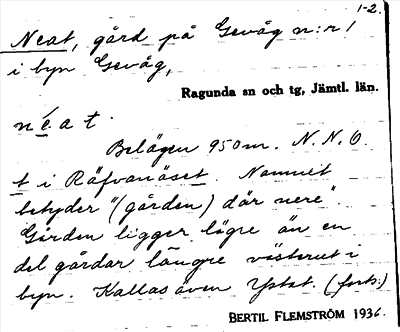 1-2.
Neat, gård på Gevåg n:r 1
i byn Gevåg,
Ragunda sn och tg, Jämtl. län.
néat.
Belägen 950 m. N.N.O.
t i Räfvanäset. Namnet
betyder "(gården) där nere".
Gården ligger lägre än en
del gårdar längre västerut i
byn. Kallas även Ystat. (forts.)
BERTIL FLEMSTRÖM 1936.